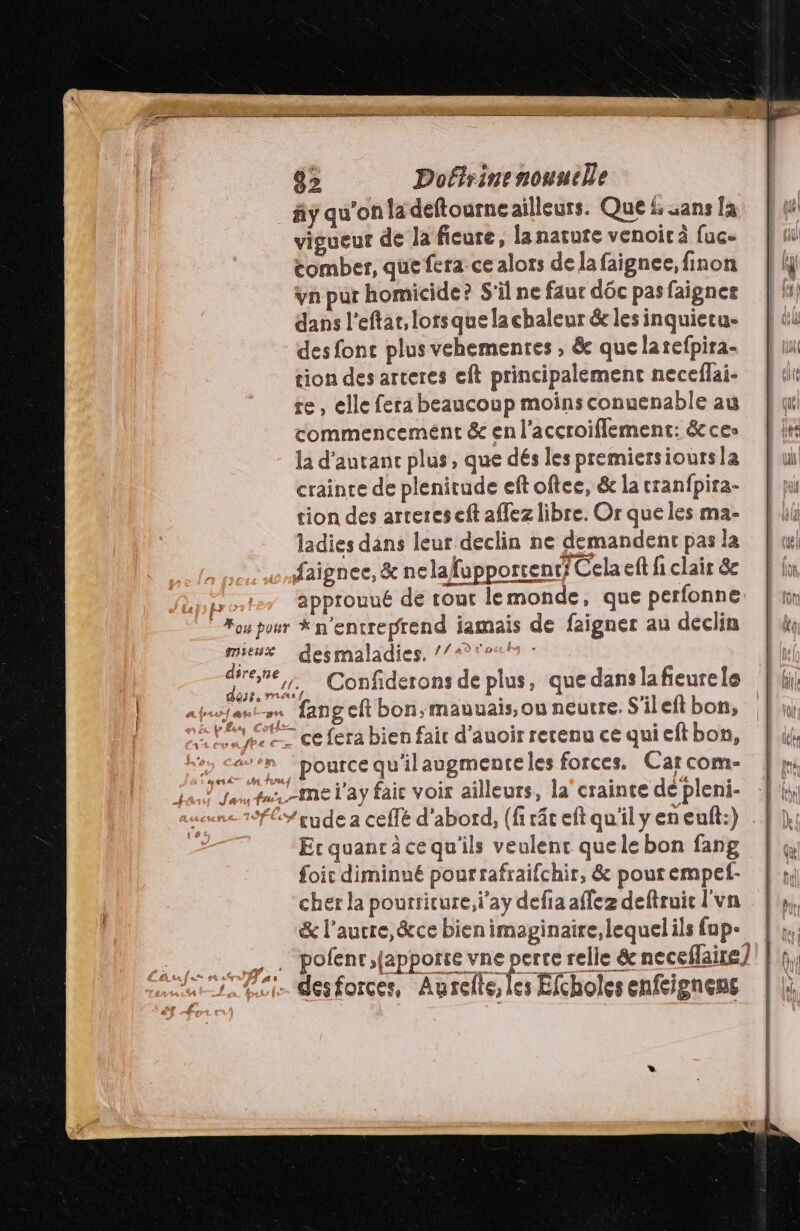 92 Doctrine nouuelle
ny qu'on la destourne ailleurs. Que si dans la
vigueur de la fieure, la nature venoit à suc-
comber, que sera-ce alors de la saignee, sinon
vn pur homicide? S'il ne faut dõc pas saigner
dans l'estat, lorsque la chaleur & les inquietu-
des sont plus vehementes, & que la respira-
tion des arteres est principalement necessai-
re, elle sera beaucoup moins conuenable au
commencement & en l'accroissement: & ce-
la d'autant plus, que dés les premiers iours la
crainte de plenitude est ostee, & la transpira-
tion des arteres est assez libre. Or que les ma-
ladies dans leur declin ne demandent pas la
saignee, & ne la supportent? Cela est si clair &
approuué de tout le monde, que personne
*ou pour * n'entreprend iamais de saigner au declin
mieux des maladies.
dire, ne Considerons de plus, que dans la fieure le
doit,
sang est bon, mauuais, ou neutre. S'il est bon,
ce sera bien fait d'auoir retenu ce qui est bon,
pource qu'il augmente les forces. Car com-
me i'ay fait voir ailleurs, la crainte de pleni-
tude a cessé d'abord, (si tãt est qu'il y en eust:)
Et quant à ce qu'ils veulent que le bon sang
soit diminué pour rafraischir, & pour empes-
cher la pourriture, i'ay desia assez destruit l'vn
& l'autre, & ce bien imaginaire, lequel ils sup-
posent, (apporte vne perte relle & necessaire)
des forces, Au reste, les Escholes enseignent